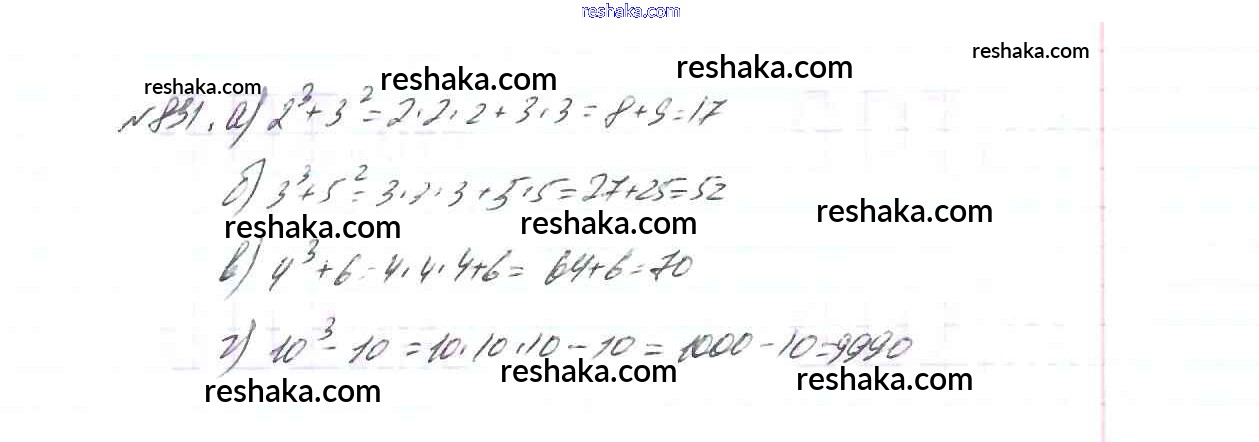 reshaka.com
reshaka.com
reshaka.com
reshaka.com
reshaka.com
№831. а) 2³+3²=2·2·2+3·3=8+9=17
б) 3³+5²=3·3·3+5·5=27+25=52
reshaka.com
reshaka.com
reshaka.com
в) 4³+6=4·4·4+6=64+6=70
г) 10³-10=10·10·10-10=1000-10=9990
reshaka.com
reshaka.com
reshaka.com